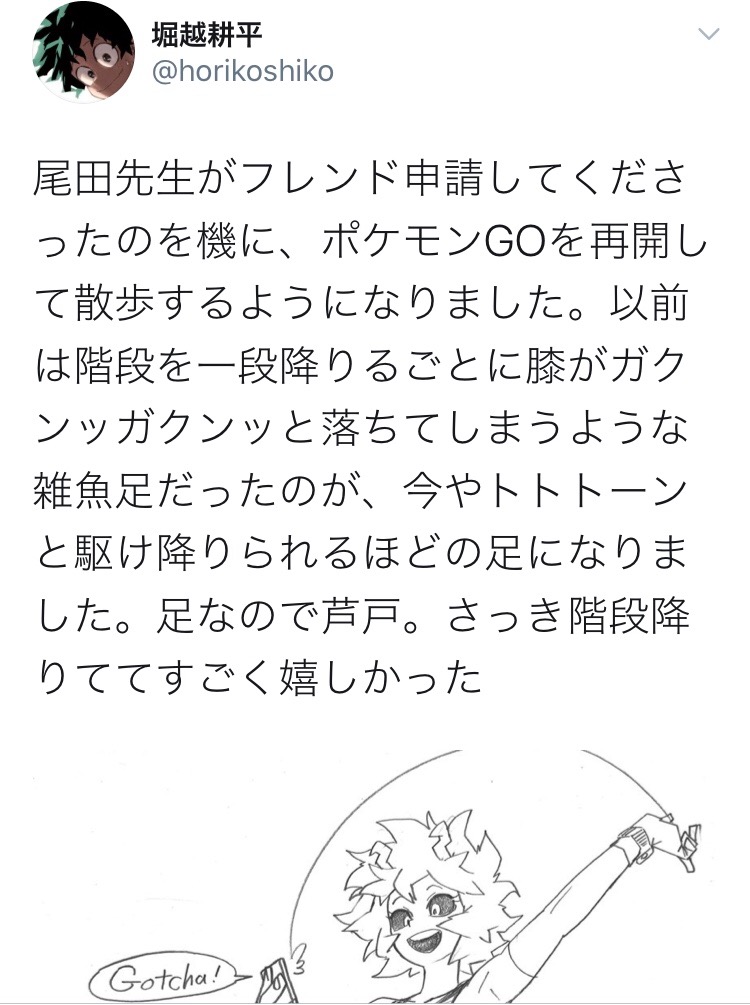 堀越耕平
@horikoshiko
尾田先生がフレンド申請してくださ
ったのを機に、ポケモンGOを再開し
て散歩するようになりました。以前
は階段を一段降りるごとに膝がガク
ンッガクンッと落ちてしまうような
雑魚足だったのが、今やトトトーン
と駆け降りられるほどの足になりま
した。足なので芦戸。さっき階段降
りててすごく嬉しかった
Gotcha!